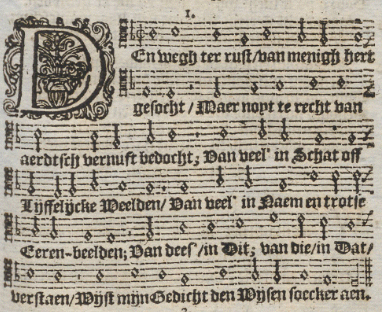 1.
DEn wegh ter rust/van menigh hert
gesocht / Maer noyt te recht van
aerdtsch vernuft bedocht; Van veel' in Schat off
Lijffelijcke Weelden/ Van veel' in Naem en trotse
Eeren-beelden; Van dees'/in Dit; van die/in Dat/
verstaen/Wijst mijn Gedicht den Wijsen soecker aen.